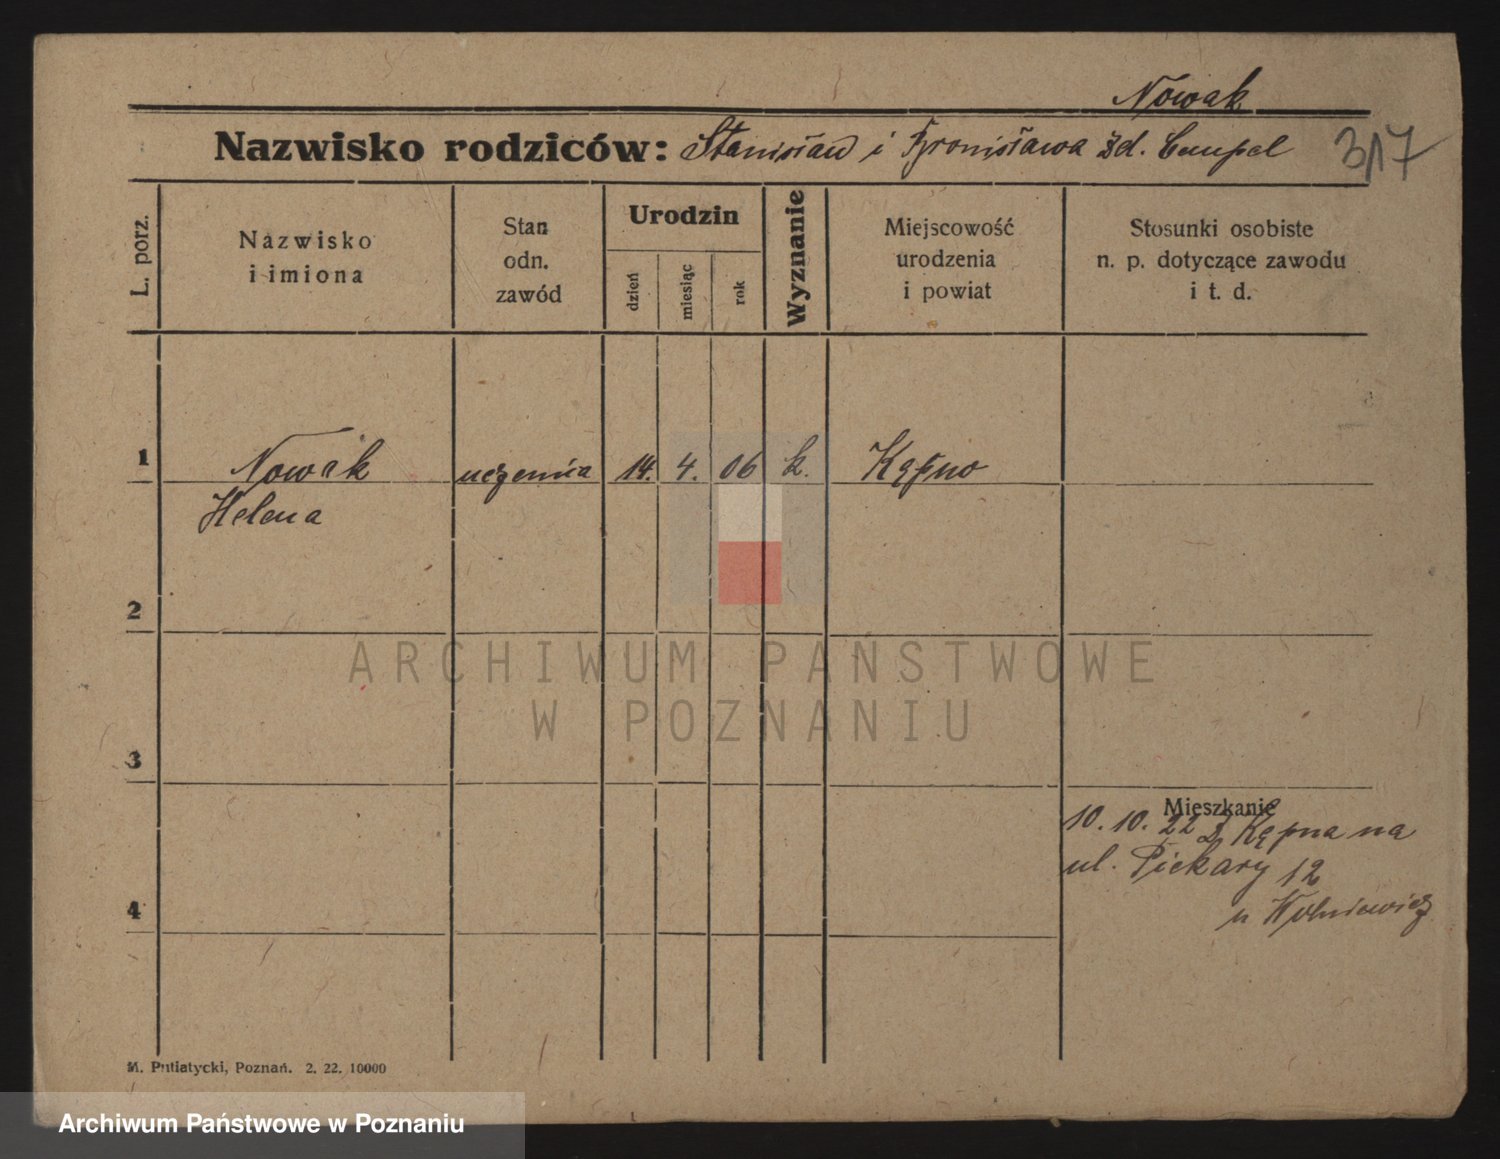 Nowak
Nazwisko rodziców: Stanisław i Bronisława zd.
317
L. porz.
Nazwisko
i imiona
Stan
odn.
zawód
Urodzin
dzień
miesiąc
rok
Wyznanie
Miejscowość
urodzenia
i powiat
Stosunki osobiste
n. p. dotyczące zawodu
i t. d.
1 Nowak uczennica 14. 4. 06 k. Kępno
Helena
2
ARCHIWUM PAŃSTWOWE
W POZNANIU
3
Mieszkanie
10. 10. 22 z Kępna na
ul. Piekary 12
u
4
M. Putiatycki, Poznań. 2. 22. 10000
Archiwum Państwowe w Poznaniu